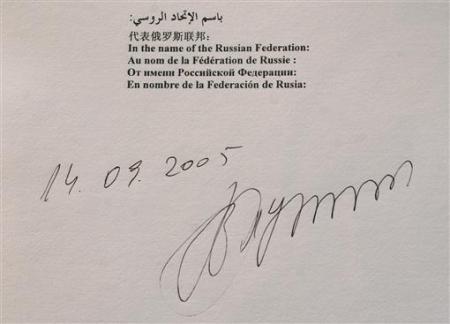 باسم الإتحاد الروسي:
代表俄罗斯联邦：
In the name of the Russian Federation:
Au nom de la Fédération de Russie :
От имени Российской Федерации:
En nombre de la Federación de Rusia:
14. 09. 2005